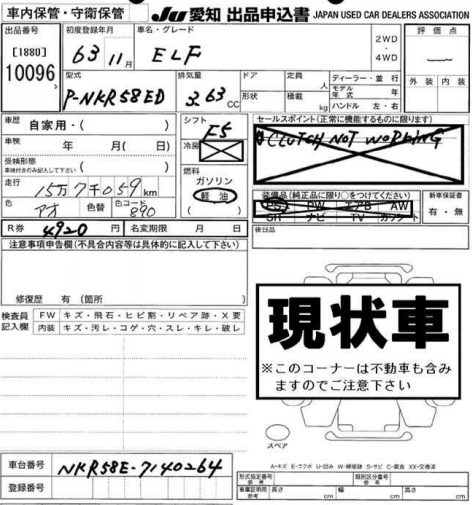 車内保管・守衛保管
JU 愛知 出品申込書 JAPAN USED CAR DEALERS ASSOCIATION
出品番号
[1880]
10096
初度登録年月
63 11月
車名・グレード
ELF
2WD
・
4WD
評価点
外装 内装
型式
P-NKR58ED
排気量
363 CC
ドア
形状
定員 人
積載 kg
ディーラー・並行
モデル年式 年
ハンドル 左・右
車歴 自家用・( )
車検 年 月( 日)
受検形態
(車検付きのみ記入して下さい) ( )
走行 15万7千059km
色 アオ 色替 色コード 890
シフト F5
冷房
燃料
ガソリン
軽油
( )
セールスポイント(正常に機能するものに限ります)
CLUTCH NOT WORKING
装備品(純正品に限り○をつけてください)
PS PW エアB AW
SR ナビ TV カワシート
新車保証書
有・無
R券 4920円 名変期限 月 日
後日品
注意事項申告欄(不具合内容等は具体的に記入して下さい)
修復歴 有 (箇所 )
検査員記入欄
FW キズ・飛石・ヒビ割・リペア跡・X要
内装 キズ・汚レ・コゲ・穴・スレ・キレ・破レ
現状車
※このコーナーは不動車も含み
ますのでご注意下さい
スペア
A-キズ E-エクボ U-凹み W-補修跡 S-サビ C-腐食 XX-交換済
車台番号 NKR58E-7140264
登録番号
型式指定番号 参考
類別区分番号 参考
車庫証明用 参考 長さ cm 幅 cm 高さ cm